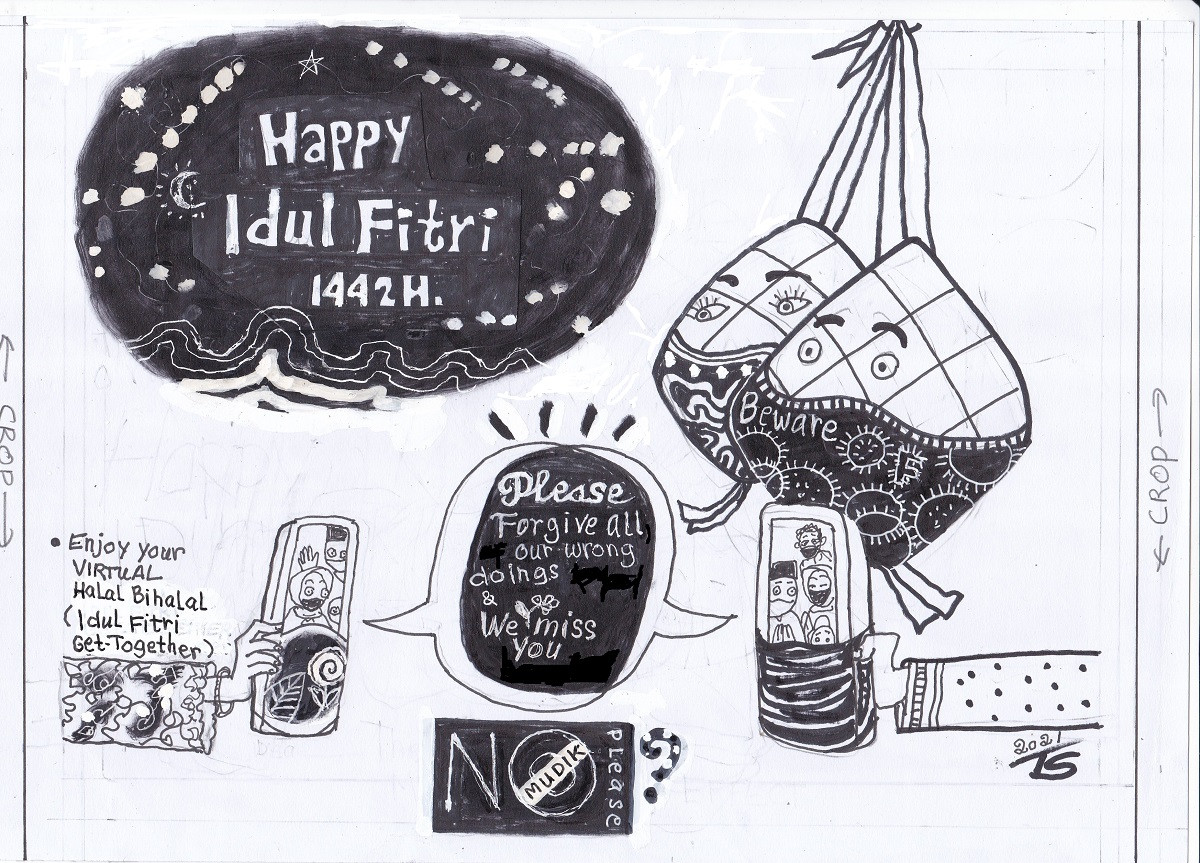 Happy
Idul Fitri
1442H.
Beware
Please
Forgive all
our wrong
doings
&
We miss
you
• Enjoy your
VIRTUAL
Halal Bihalal
(Idul Fitri
Get-Together)
NO
MUDIK
please
?
2021
TS
← CROP →
← CROP →